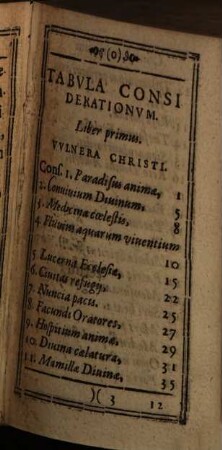 (0)
TABVLA CONSI
DERATIONVM.
Liber primus.
VVLNERA CHRISTI.
Cons. 1. Paradisus animæ, 1
2. Conuiuium Diuinum, 5
3. Medicina cælestis, 8
4. Flumen aquarum viuentium
10
5. Lucerna Ecclesiæ, 15
6. Ciuitas refugij, 22
7. Nuncia pacis. 25
8. Facundi Oratores, 27
9. Hospitium animæ, 29
10. Diuina cælatura, 31
11. Mamillæ Diuinæ, 35
)( 3 12